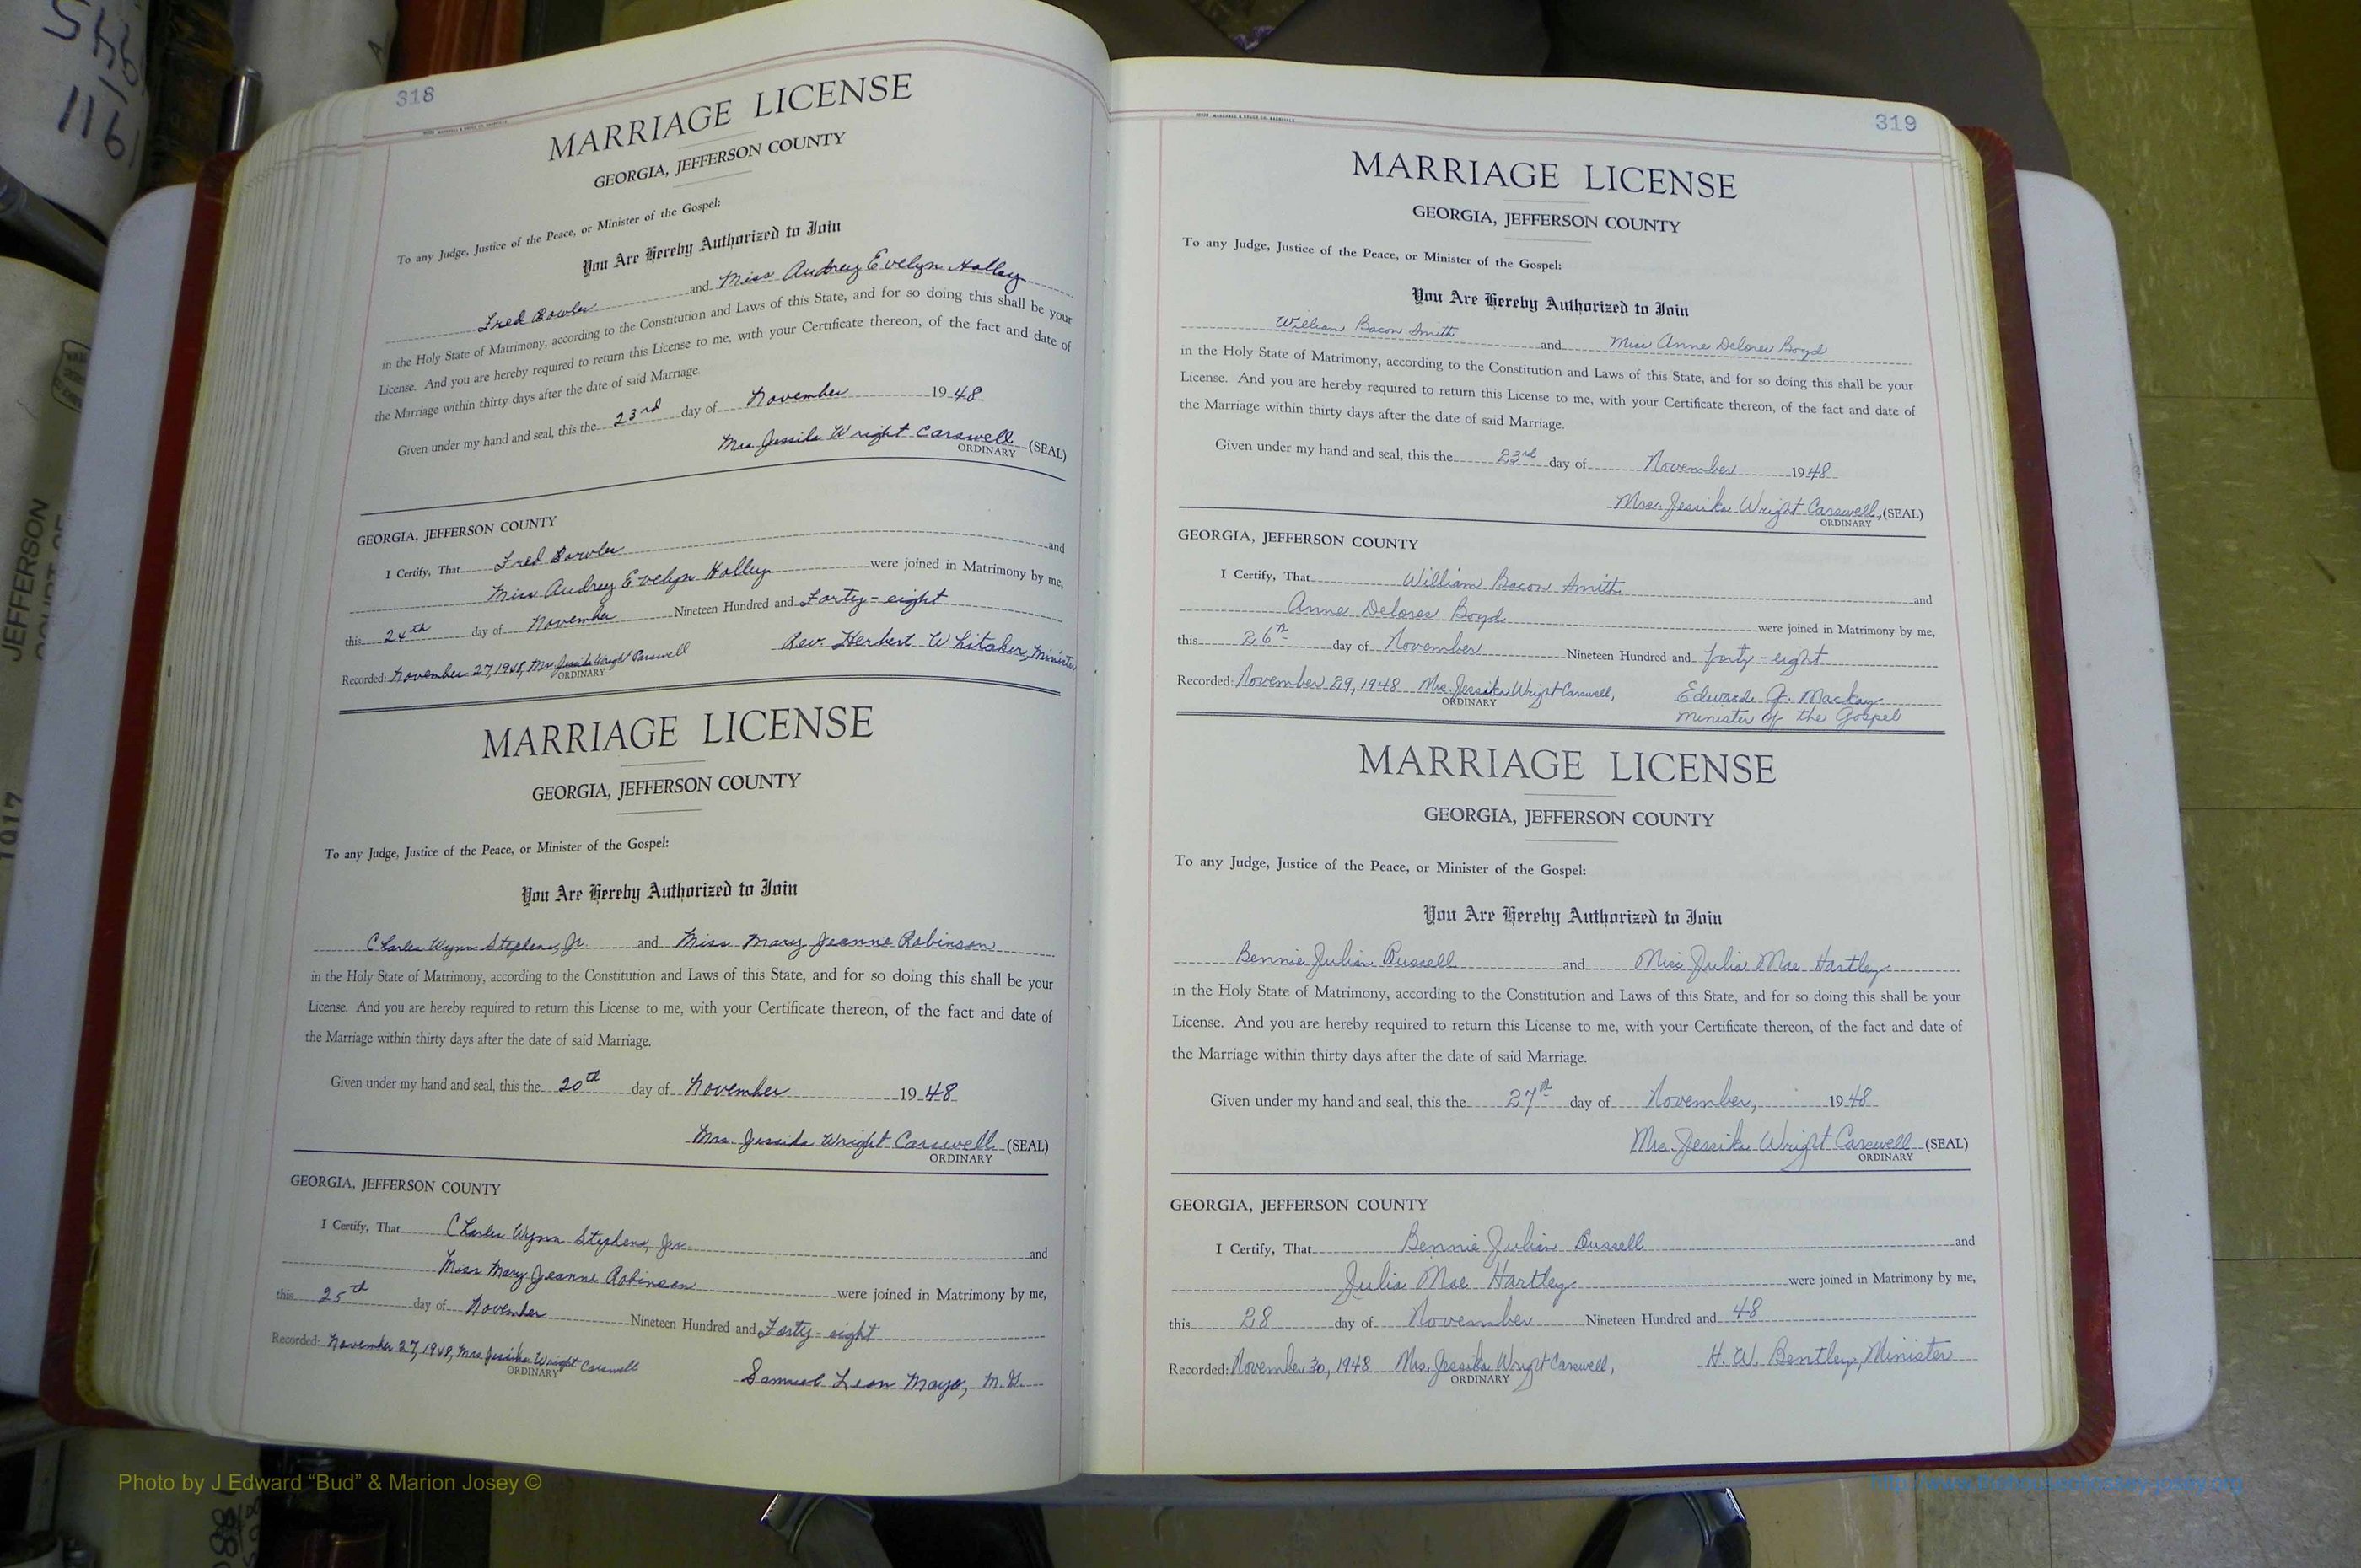 318
MARRIAGE LICENSE
GEORGIA, JEFFERSON COUNTY
To any Judge, Justice of the Peace, or Minister of the Gospel:
You Are Hereby Authorized to Join
Fred Bowler and Miss Audrey Evelyn Holley
in the Holy State of Matrimony, according to the Constitution and Laws of this State, and for so doing this shall be your
License. And you are hereby required to return this License to me, with your Certificate thereon, of the fact and date of
the Marriage within thirty days after the date of said Marriage.
Given under my hand and seal, this the 23rd day of November 1948
Mrs Jessika Wright Carswell (SEAL)
ORDINARY
GEORGIA, JEFFERSON COUNTY
I Certify, That Fred Bowler and
Miss Audrey Evelyn Holley were joined in Matrimony by me,
this 24th day of November Nineteen Hundred and Forty-eight
Rev. Herbert Whitaker, Minister
Recorded: November 27, 1948, Mrs Jessika Wright Carswell
ORDINARY
MARRIAGE LICENSE
GEORGIA, JEFFERSON COUNTY
To any Judge, Justice of the Peace, or Minister of the Gospel:
You Are Hereby Authorized to Join
Charles Wynn Stephens, Jr. and Miss Mary Jeanne Robinson
in the Holy State of Matrimony, according to the Constitution and Laws of this State, and for so doing this shall be your
License. And you are hereby required to return this License to me, with your Certificate thereon, of the fact and date of
the Marriage within thirty days after the date of said Marriage.
Given under my hand and seal, this the 20th day of November 1948
Mrs. Jessika Wright Carswell (SEAL)
ORDINARY
GEORGIA, JEFFERSON COUNTY
I Certify, That Charles Wynn Stephens, Jr. and
Miss Mary Jeanne Robinson were joined in Matrimony by me,
this 25th day of November Nineteen Hundred and Forty-eight
Recorded: November 27, 1948, Mrs Jessika Wright Carswell
ORDINARY
Samuel Leon Mayo, M.G.
319
MARRIAGE LICENSE
GEORGIA, JEFFERSON COUNTY
To any Judge, Justice of the Peace, or Minister of the Gospel:
You Are Hereby Authorized to Join
William Bacon Smith and Miss Anne Delores Boyd
in the Holy State of Matrimony, according to the Constitution and Laws of this State, and for so doing this shall be your
License. And you are hereby required to return this License to me, with your Certificate thereon, of the fact and date of
the Marriage within thirty days after the date of said Marriage.
Given under my hand and seal, this the 23rd day of November 1948
Mrs. Jessika Wright Carswell, (SEAL)
ORDINARY
GEORGIA, JEFFERSON COUNTY
I Certify, That William Bacon Smith and
Anne Delores Boyd were joined in Matrimony by me,
this 26th day of November Nineteen Hundred and forty-eight
Recorded: November 29, 1948 Mrs. Jessika Wright Carswell, Edward G. Mackay
ORDINARY minister of the Gospel
MARRIAGE LICENSE
GEORGIA, JEFFERSON COUNTY
To any Judge, Justice of the Peace, or Minister of the Gospel:
You Are Hereby Authorized to Join
Bennie Julian Bussell and Miss Julia Mae Hartley
in the Holy State of Matrimony, according to the Constitution and Laws of this State, and for so doing this shall be your
License. And you are hereby required to return this License to me, with your Certificate thereon, of the fact and date of
the Marriage within thirty days after the date of said Marriage.
Given under my hand and seal, this the 27th day of November, 1948
Mrs. Jessika Wright Carswell (SEAL)
ORDINARY
GEORGIA, JEFFERSON COUNTY
I Certify, That Bennie Julian Bussell and
Julia Mae Hartley were joined in Matrimony by me,
this 28 day of November Nineteen Hundred and 48
Recorded: November 30, 1948 Mrs. Jessika Wright Carswell, H. W. Bentley, Minister
ORDINARY
JEFFERSON
1917
116
Photo by J Edward “Bud” & Marion Josey ©